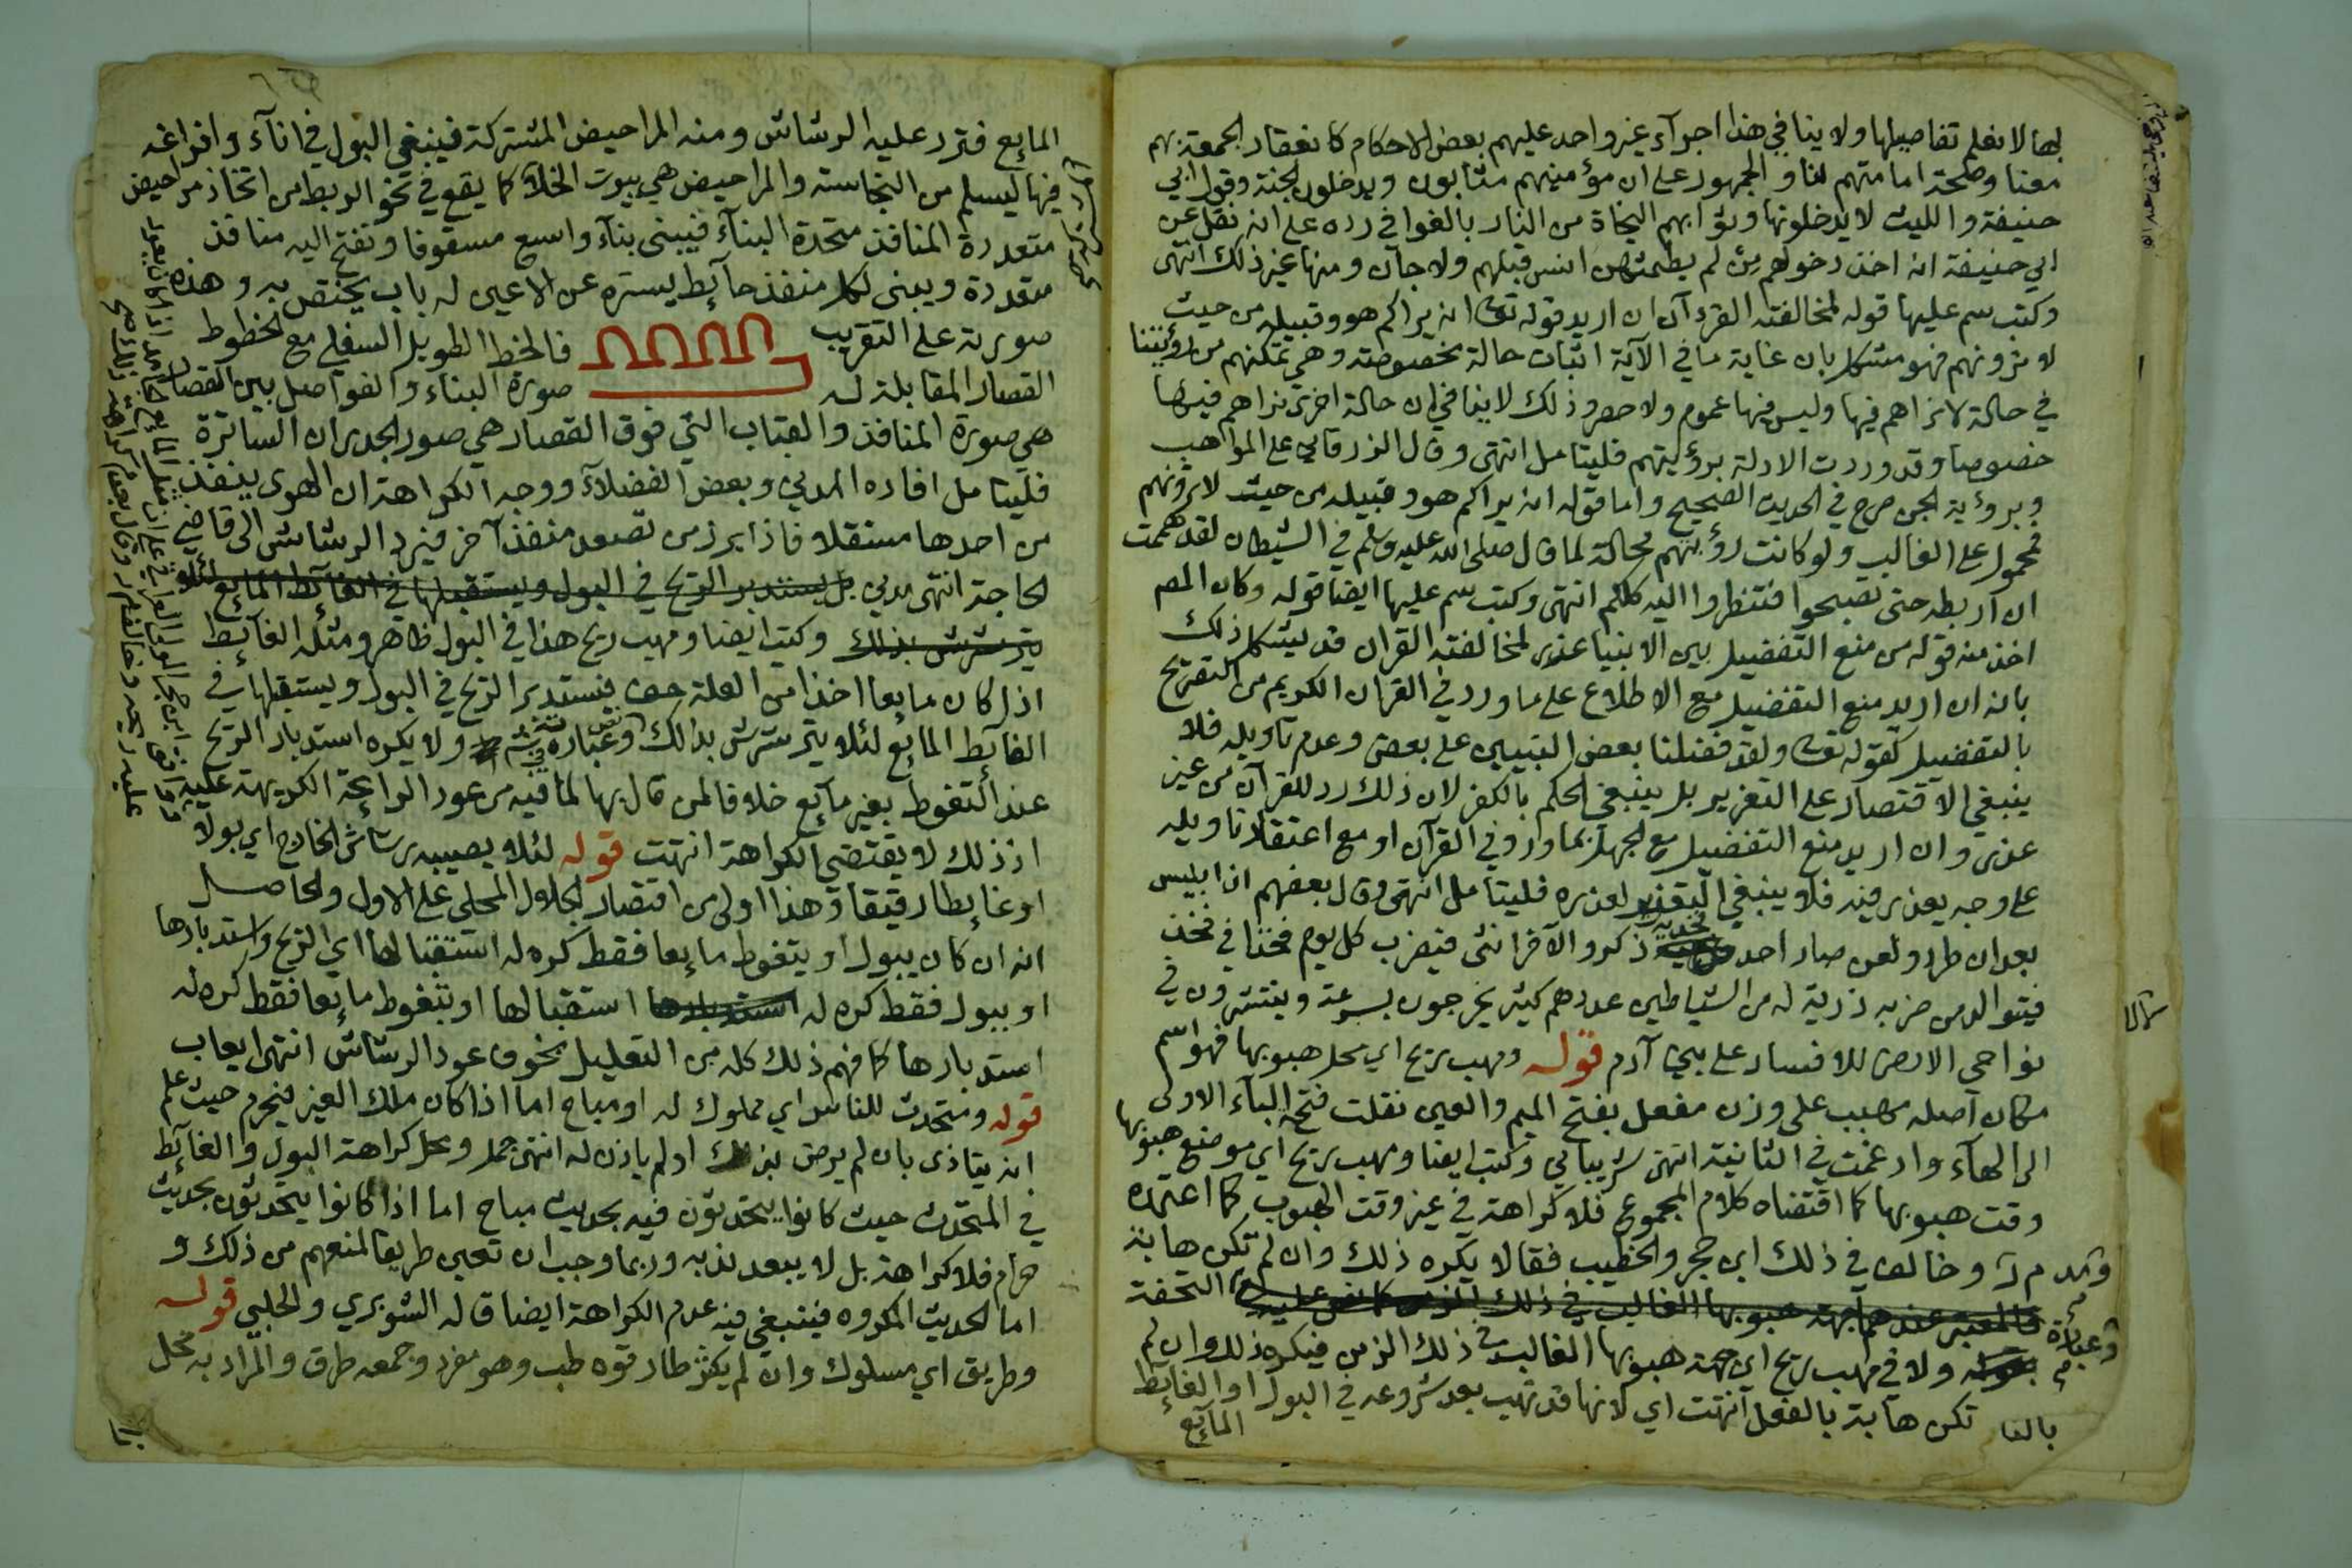 لها لا نعلم تفاصيلها ولا ينافي هذا اجرآء غير واحد عليهم بعض الاحكام كانعقاد الجمعة بهم
معنا وصحة امامتهم لنا والجمهور على ان مؤمنيهم مثابون ويدخلون الجنة وقول ابي
حنيفة والليث لا يدخلونها وثوابهم النجاة من النار بالغوا في رده على انه نقل عن
ابي حنيفة انه اخذ دخولهم من لم يطمثهن انس قبلهم ولا جان ومنها غير ذلك انتهى
وكتب سم عليها قوله لمخالفته القرءآن ان اريد قوله تعا انه يراكم هو وقبيله من حيث
لا ترونهم فهو مشكل بان غاية ما في الآية اثبات حالة مخصوصة وهي تمكنهم من رؤيتنا
في حالة لا نراهم فيها وليس فيها عموم ولا حصر وذلك لا ينافي ان حالة اخرى نراهم فيها
خصوصا وقد وردت الادلة برؤيتهم فليتامل انتهى وقال الزرقاني على المواهب
وبرؤية الجن صرح في الحديث الصحيح واما قوله انه يراكم هو وقبيله من حيث لا ترونهم
فمحمول على الغالب ولو كانت رؤيتهم محالة لما قال صلى الله عليه وسلم في الشيطان لقد هممت
ان اربطه حتى تصبحوا فتنظروا اليه كلكم انتهى وكتب سم عليها ايضا قوله وكان المصم
اخذ منه قوله من منع التفضيل بين الانبيا عذر لمخالفته القران قد يشكل ذلك
بانه ان اريد منع التفضيل مع الاطلاع على ما ورد في القران الكريم من التصريح
بالتفضيل كقوله تعا ولقد فضلنا بعض النبيين على بعض وعدم تاويله فلا
ينبغي الاقتصار على التعزير بل ينبغي الحكم بالكفر لان ذلك رد للقرآن من غير
عذر وان اريد منع التفضيل مع الجهل بما ورد في القرآن او مع اعتقاد تاويله
على وجه يعذر فيه فلا ينبغي التعزير لعذره فليتامل انتهى وقال بعضهم ان ابليس
بعد ان طرد ولعن صار احد فخذيه ذكر والآخر انثى فيضرب كل يوم فخذا في فخذ
فيتوالد من ضربه ذرية له من الشياطين عددهم كثير يخرجون بسرعة وينتشرون في
نواحي الارض للافساد على بني آدم قوله ومهب ريح اي محل هبوبها فهو اسم
مكان اصله مهبب على وزن مفعل بفتح الميم والعين نقلت فتحة البآء الاولى
الى الهآء وادغمت في الثانية انتهى شربياني وكتب ايضا ومهب ريح اي موضع هبوبها
وقت هبوبها كما اقتضاه كلام المجموع فلا كراهة في غير وقت الهبوب كما اعتمده
م ر وخالف في ذلك ابن حجر والخطيب فقالا يكره ذلك وان لم تكن هابة
فالمعتبر عندهما جهة هبوبها الغالب في ذلك الزمن كما نص عليه وعبارة التحفة
ولا في مهب ريح اي جهة هبوبها الغالب في ذلك الزمن فيكره ذلك وان لم
تكن هابة بالفعل انتهت اي لانها قد تهب بعد شروعه في البول او الغائط
المآيع
المايع فترد عليه الرشاش ومنه المراحيض المشتركة فينبغي البول في انآء وافراغه
فيها ليسلم من النجاسة والمراحيض هي بيوت الخلآ كما يقع في نحو الربط من اتخاذ مراحيض
متعددة المنافذ متحدة البنآء فيبنى بنآء واسع مسقوفا وتفتح اليه منافذ
متعددة ويبنى لكل منفذ حآئط يستره عن الاعين له باب يختص به وهذه
صورته على التقريب فالخط الطويل السفلي مع الخطوط
القصار المقابلة له صورة البناء والفواصل بين القصار
هي صورة المنافذ والقباب التي فوق القصار هي صور الجدران الساترة
فليتامل افاده المدني وبعض الفضلآء ووجه الكراهة ان الهوى ينفذ
من احدها مستقلا فاذا برز من تصعد منفذ آخر فيرد الرشاش الى قاضي
الحاجة انتهى مدني بل يستدبر الريح في البول ويستقبلها في الغآئط المايع لئلا
يترشرش بذلك وكتب ايضا ومهب ريح هذا في البول ظاهر ومثله الغآئط
اذا كان مايعا اخذا من العلة فيستدبر الريح في البول ويستقبلها في
الغآئط المايع لئلا يترشرش بذالك وعبارة ولا يكره استدبار الريح
عند التغوط بغير مآيع خلافا لمن قال بها لما فيه من عود الرائحة الكريهة عليه
اذ ذلك لا يقتضي الكراهة انتهت قوله لئلا يصيبه رشاش الخارج اي بولا
او غايطا رقيقا وهذا اولى من اقتصار الجلال المحلي على الاول والحاصل
انه ان كان يبول او يتغوط مايعا فقط كره له استقبالها اي الريح واستدبارها
او يبول فقط كره له استدبارها استقبالها او يتغوط مايعا فقط كره له
استدبارها كما فهم ذلك كله من التعليل بخوف عود الرشاش انتهى ايعاب
قوله ومتحدث للناس اي مملوك له او مباح اما اذا كان ملك الغير فيحرم حيث علم
انه يتاذى بان لم يرض بذلك او لم ياذن له انتهى جمل ومحل كراهة البول والغآئط
في المتحدث حيث كانوا يتحدثون فيه بحديث مباح اما اذا كانوا يتحدثون بحديث
حرام فلا كراهة بل لا يبعد ندبه وربما وجب ان تعين طريقا لمنعهم من ذلك و
اما الحديث المكروه فينبغي فيه عدم الكراهة ايضا قاله الشوبري والحلبي قوله
وطريق اي مسلوك وان لم يكثر طارقوه طب وهو مفرد وجمعه طرق والمراد به محل